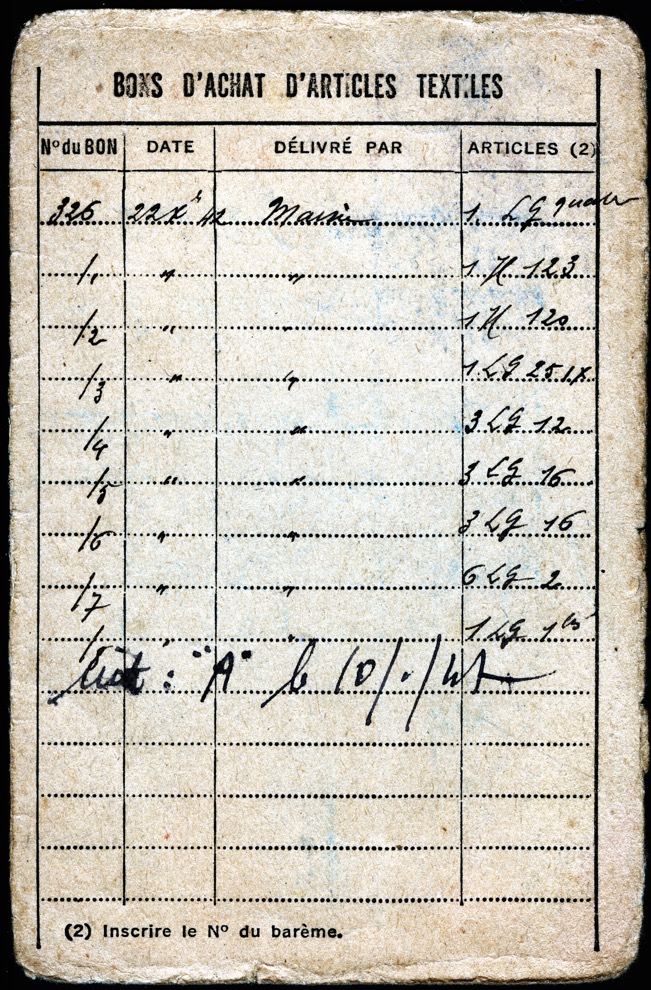 BONS D'ACHAT D'ARTICLES TEXTILES
Nº du BON DATE DÉLIVRÉ PAR ARTICLES (2)
326 22 Xᵇ 42 Mairie 1 LG
/1 " " 1 H 123
/2 " " 1 H 120
/3 " " 1 LG 25
/4 " " 3 LG 12
/5 " " 3 LG 16
/6 " " 3 LG 16
/7 " " 6 LG 2
/ " " 1 LG 1
: "A" le 10/./4
(2) Inscrire le Nº du barème.